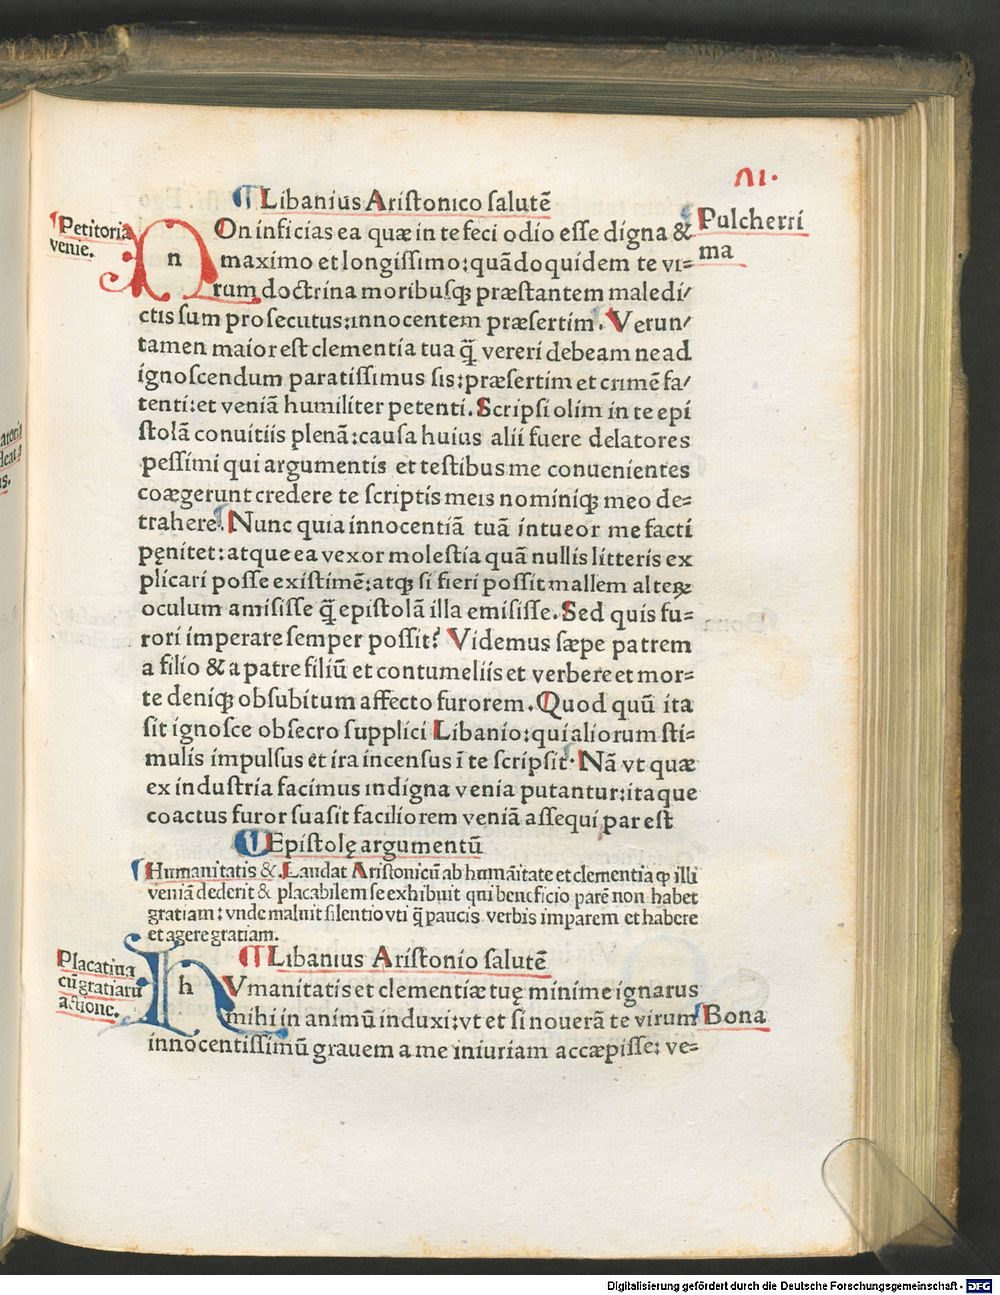 VI.
¶ Libanius Aristonico salutē
Petitoria
venie.
Pulcherri
ma
n On inficias ea quæ in te feci odio esse digna &
maximo et longissimo: quādoquidem te vi=
rum doctrina moribusqꝫ præstantem maledi/
ctis sum prosecutus: innocentem præsertim. Verun/
tamen maior est clementia tua q̄ vereri debeam ne ad
ignoscendum paratissimus sis: præsertim et crimē fa/
tenti: et veniā humiliter petenti. Scripsi olim in te epi
stolā conuitiis plenā: causa huius alii fuere delatores
pessimi qui argumentis et testibus me conuenientes
coægerunt credere te scriptis meis nominiqꝫ meo de=
trahere. Nunc quia innocentiā tuā intueor me facti
pęnitet: atque ea vexor molestia quā nullis litteris ex
plicari posse existimē: atqꝫ si fieri possit mallem alteꝝ
oculum amisisse q̄ epistolā illa emisisse. Sed quis fu=
rori imperare semper possit? Videmus sæpe patrem
a filio & a patre filiū et contumeliis et verbere et mor=
te deniqꝫ ob subitum affecto furorem. Quod quū ita
sit ignosce obsecro supplici Libanio: qui aliorum sti=
mulis impulsus et ira incensus ī te scripsit. Nā vt quæ
ex industria facimus indigna venia putantur: itaque
coactus furor suasit faciliorem veniā assequi par est
¶ Epistolę argumentū
Humanitatis &. Laudat Aristonicū ab humāitate et clementia ꝙ illi
veniā dederit & placabilem se exhibuit qui beneficio parē non habet
gratiam: vnde maluit silentio vti q̄ paucis verbis imparem et habere
et agere gratiam.
¶ Libanius Aristonio salutē
Placatiua
cū gratiarū
actione.
h Vmanitatis et clementiæ tuę minime ignarus
mihi in animū induxi: vt et si nouerā te virum
Bona
innocentissimū grauem a me iniuriam accæpisse: ve=